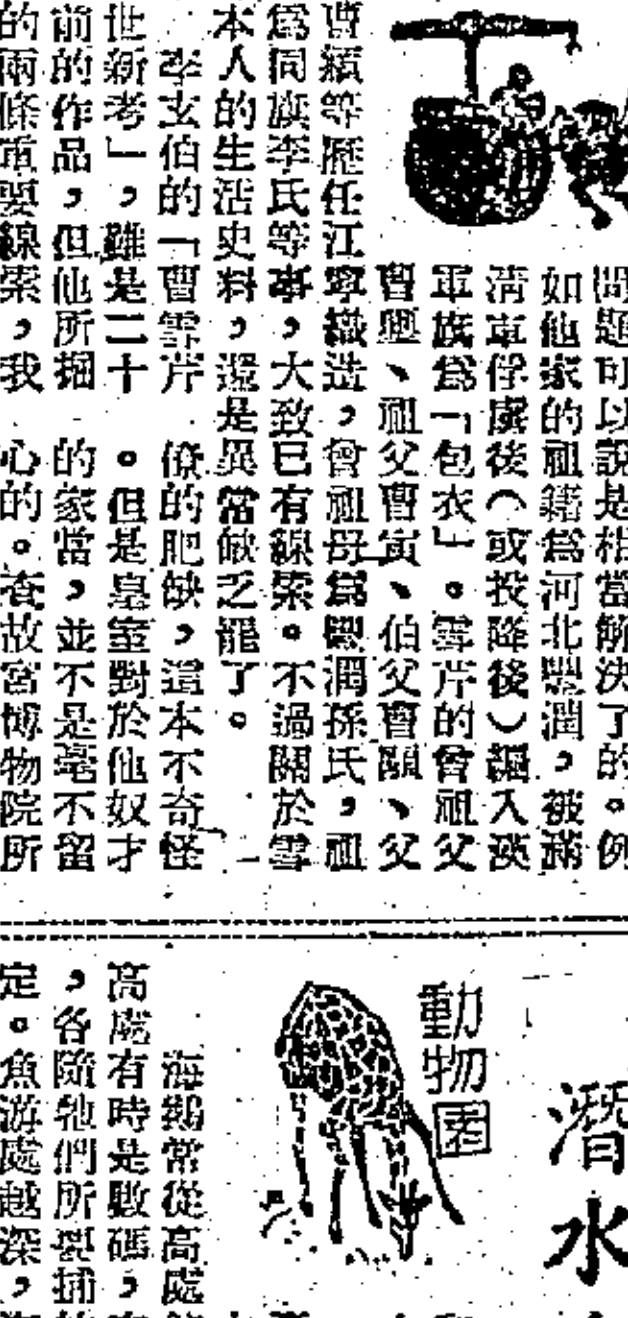 問題可以說是相當解決了的。例
如他家的祖籍為河北豐潤,被滿
清軍俘虜後(或投降後)編入漢
軍旗為「包衣」。雪芹的曾祖父
曹璽、祖父曹寅、伯父曹顒、父
曹頫等歷任江寧織造,曾祖母為豐潤孫氏,祖
為同旗李氏等事,大致已有線索。不過關於雪
本人的生活史料,還是異常缺乏罷了。
李玄伯的「曹雪芹
世新考」,雖是二十
前的作品,但他所掘
的兩條重要線索,我
僚的肥缺,這本不奇怪
。但是皇室對於他奴才
的家當,並不是毫不留
心的。查故宮博物院所
潛水
動物園
海鵝常從高處
高處有時是數碼,
,各隨牠們所要捕
定。魚游處越深,